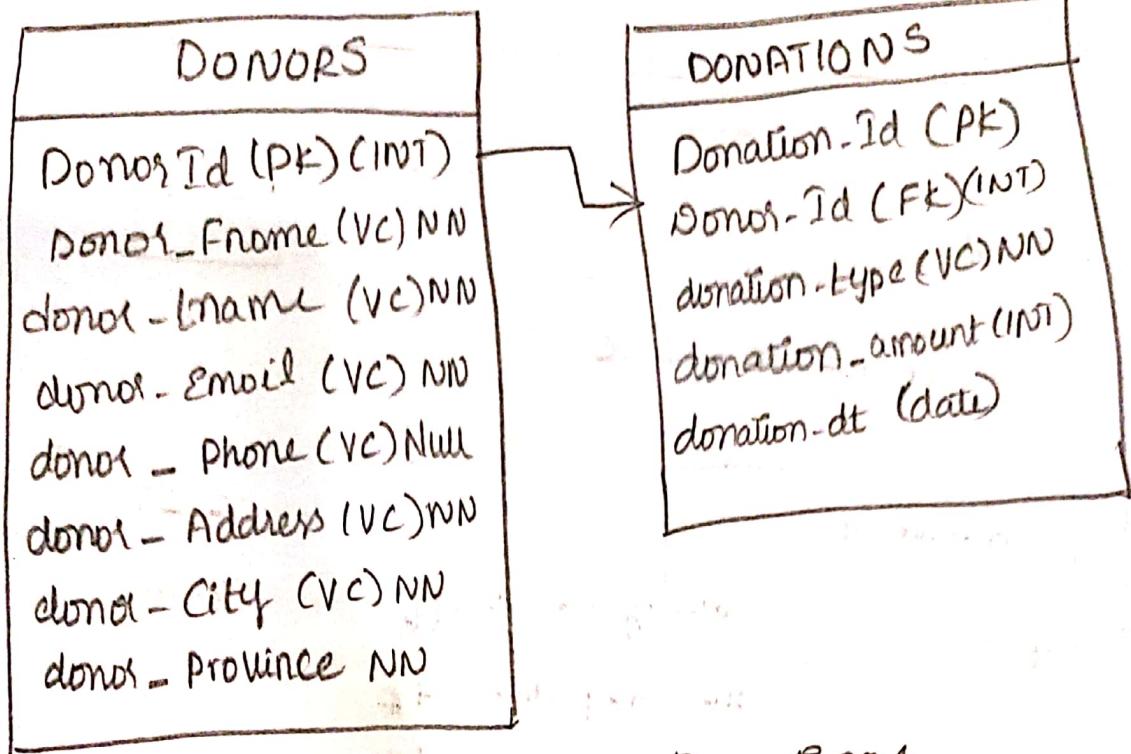 DONORS
Donor Id (PK) (INT)
Donor_Fname (VC) NN
donor_Lname (VC) NN
donor_Email (VC) NN
donor_Phone (VC) Null
donor_Address (VC) NN
donor_City (VC) NN
donor_Province NN
DONATIONS
Donation_Id (PK)
Donor_Id (FK) (INT)
donation_type (VC) NN
donation_amount (INT)
donation_dt (date)